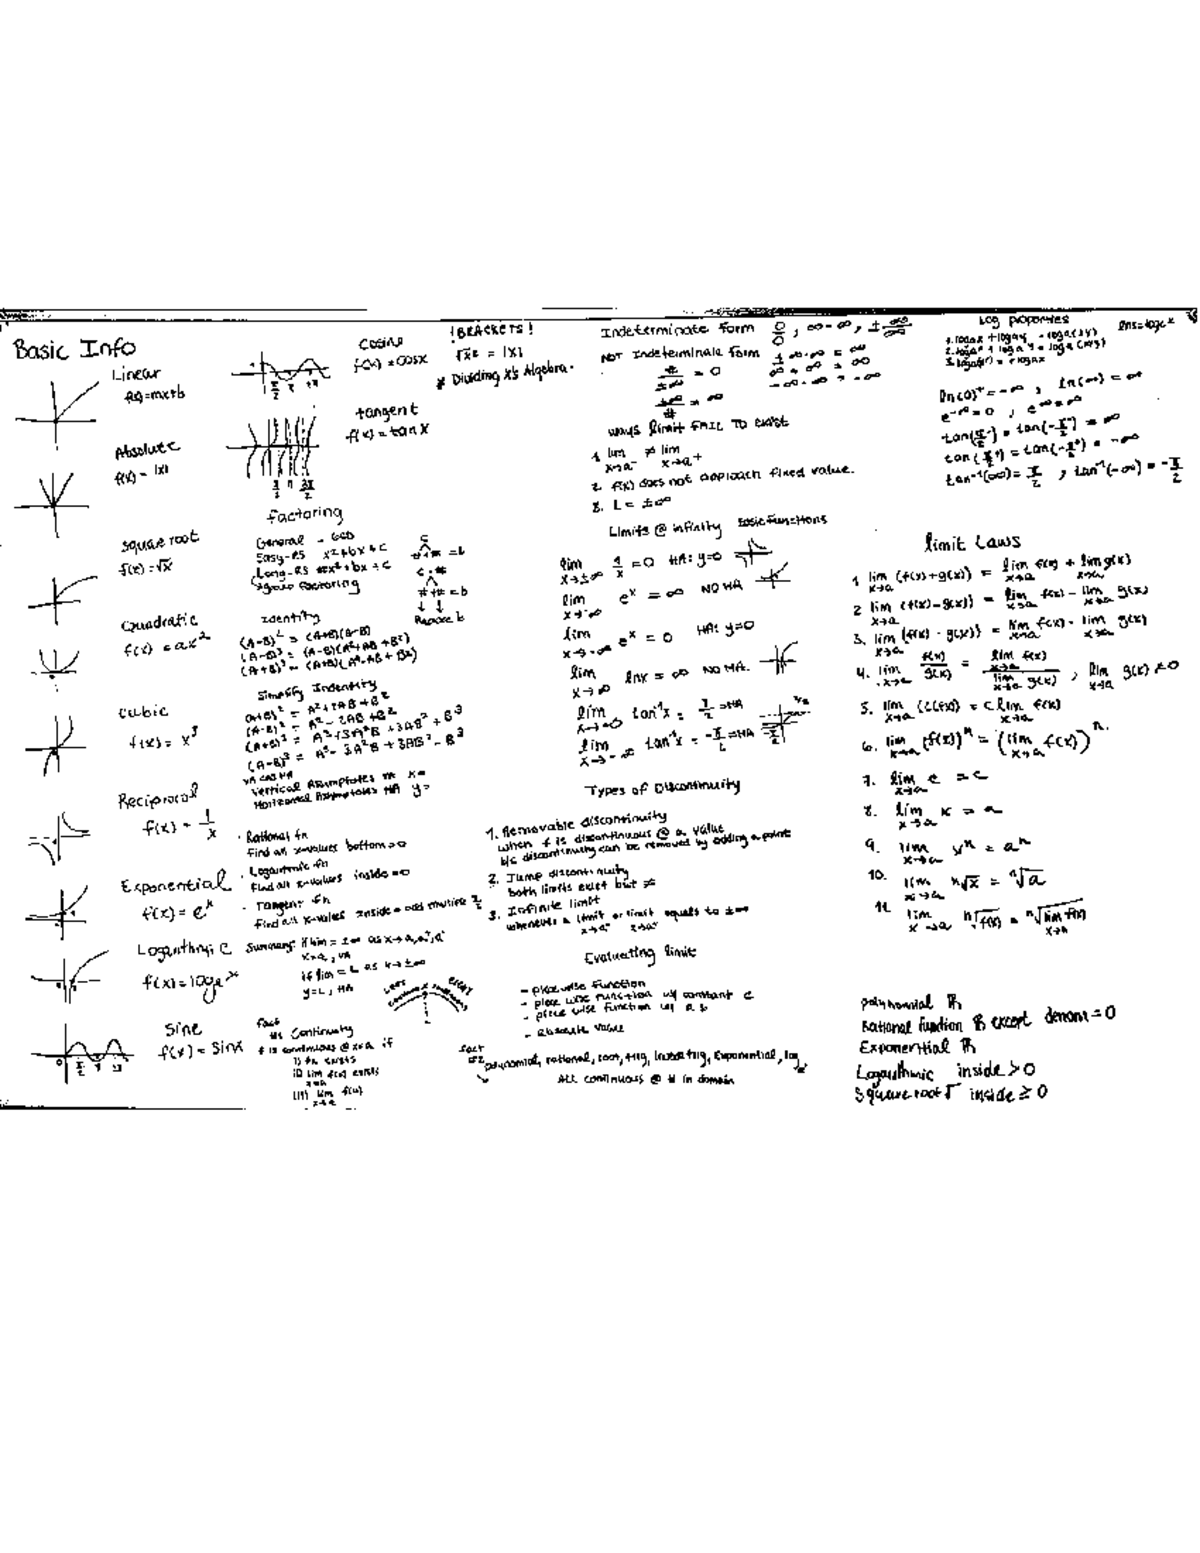 Basic Info
Linear
f(x)=mx+b
Absolute
f(x) = |x|
square root
f(x) = √x
Quadratic
f(x) = ax²
cubic
f(x) = x³
Reciprocal
f(x) = 1/x
Exponential
f(x) = eˣ
Logarithmic
Sine
f(x) = sinx
cosine
f(x) = cosx
tangent
f(x) = tanx
Factoring
General - GCD
Easy-RS x²+bx+c
group factoring
c
#+# = b
c·#
#+# = b
Replace b
Identity
(A-B)³ = (A-B)(A²+AB+B²)
(A+B)³ = (A+B)(A²-AB+B²)
Simplify Indentity
(A+B)² = A²+2AB+B²
(A-B)² = A²-2AB+B²
(A+B)³ = A³+3A²B+3AB²+B³
(A-B)³ = A³-3A²B+3AB²-B³
Vertical Asymptotes x=
Horizontal Asymptotes HA y=
· Rational fn
find all x-values bottom=0
· Logarithmic fn
find all x-values inside=0
· Tangent fn
find all x-values inside = odd multiple π/2
Summary: if lim = ±∞ as x→a, a⁺, a⁻
x=a, VA
if lim = L as x→±∞
y=L, HA
fact
#1 Continuity
f is continuous @ x=a if
ii) lim f(x) exists
x→a
iii) lim f(x)
x→a
!BRACKETS!
√x² = |x|
* Dividing x's Algebra.
Indeterminate form 0/0, ∞-∞, ±∞/∞
NOT Indeterminate form
#/±∞ = 0
±∞/# = ∞
∞+∞ = ∞
-∞-∞ = -∞
ways limit FAIL TO exist
1. lim x→a⁻ ≠ lim x→a⁺
2. f(x) does not approach fixed value.
3. L = ±∞
Limits @ infinity Basic Functions
lim x→±∞ 1/x = 0 HA: y=0
lim x→∞ eˣ = ∞ NO HA
lim x→-∞ eˣ = 0 HA: y=0
lim x→∞ lnx = ∞ NO HA.
lim x→∞ tan⁻¹x = π/2 =HA
lim x→-∞ tan⁻¹x = -π/2 =HA
Types of Discontinuity
1. Removable discontinuity
when f is discontinuous @ a value
b/c discontinuity can be removed by adding a point
2. Jump discontinuity
both limits exist but ≠
3. Infinite limit
whenever a limit or limit equals to ±∞
x→a⁻ x→a⁺
Evaluating limit
- piecewise function
- piece wise function w/ constant c
- piece wise function w/ a b
- absolute value
fact
#2
polynomial, rational, root, trig, inverse trig, Exponential, log
ALL continuous @ # in domain
Log properties
ln(0)⁺ = -∞, ln(∞) = ∞
e^-∞ = 0, e^∞ = ∞
tan⁻¹(∞) = π/2, tan⁻¹(-∞) = -π/2
limit Laws
1. lim x→a (f(x)+g(x)) = lim x→a f(x) + lim x→a g(x)
2. lim x→a (f(x)-g(x)) = lim x→a f(x) - lim x→a g(x)
3. lim x→a (f(x)·g(x)) = lim x→a f(x) · lim x→a g(x)
4. lim x→a f(x)/g(x) = lim x→a f(x) / lim x→a g(x), lim x→a g(x) ≠ 0
5. lim x→a (cf(x)) = c lim x→a f(x)
6. lim x→a (f(x))ⁿ = (lim x→a f(x))ⁿ.
7. lim x→a c = c
8. lim x→a x = a
9. lim x→a xⁿ = aⁿ
10. lim x→a ⁿ√x = ⁿ√a
11. lim x→a ⁿ√f(x) = ⁿ√lim x→a f(x)
polynomial ℝ
Rational function ℝ except denom=0
Exponential ℝ
Logarithmic inside>0
Square root √ inside ≥ 0